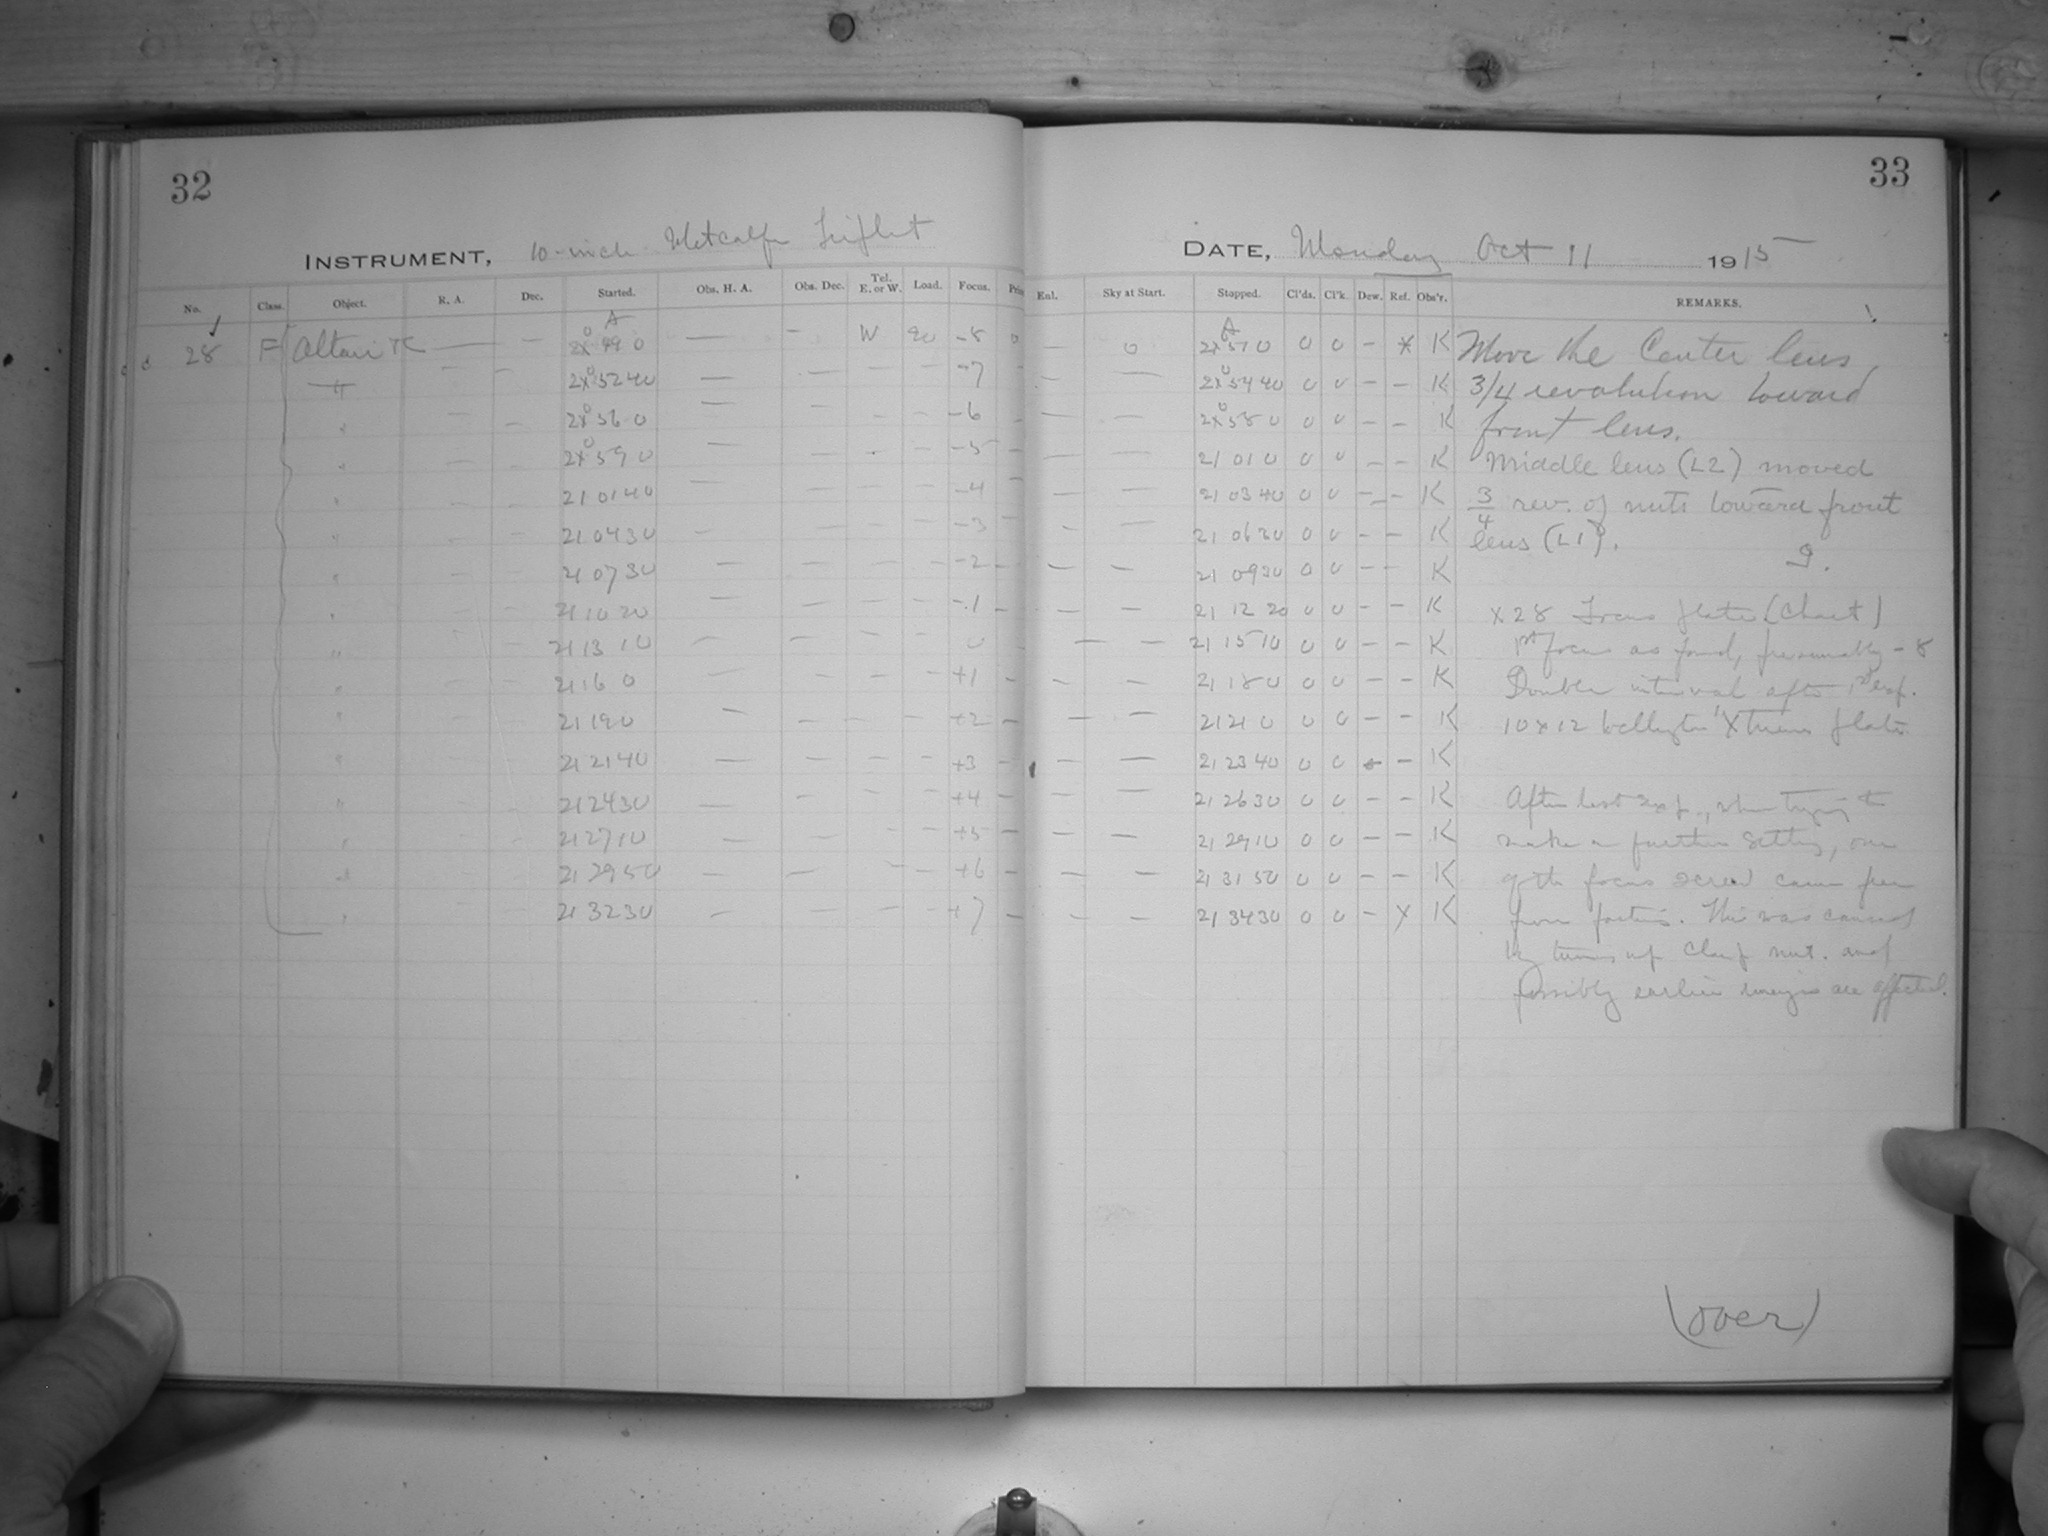 32
INSTRUMENT, 10-inch Metcalf Triplet
No. Class. Object. R. A. Dec. Started. Obs. H. A. Obs. Dec. Tel. E. or W. Load. Focus.
28 F Altair — — 20 49 0 — — W 20 -8 0
" — — 20 52 40 — — — — -7
" — — 20 56 0 — — — — -6
" — — 20 59 0 — — — — -5
" — — 21 01 40 — — — — -4
" — — 21 04 30 — — — — -3
" — — 21 07 30 — — — — -2
" — — 21 10 20 — — — — -1
" — — 21 13 10 — — — — 0
" — — 21 16 0 — — — — +1
" — — 21 19 0 — — — — +2
" — — 21 21 40 — — — — +3
" — — 21 24 30 — — — — +4
" — — 21 27 10 — — — — +5
" — — 21 29 50 — — — — +6
" — — 21 32 30 — — — — +7
33
DATE, Monday Oct 11 1915
Enl. Sky at Start. Stopped. Cl'ds. Cl'k. Dew. Ref. Obs'r. REMARKS.
— 0 20 51 0 0 0 – x K Move the Center lens
— — 20 54 40 0 0 – – K 3/4 revolution toward
— — 20 58 0 0 0 – – K front lens.
— — 21 01 0 0 0 – – K Middle lens (L2) moved
— — 21 03 40 0 0 – – K 3/4 rev. of nuts toward front
— — 21 06 30 0 0 – – K lens (L1).
— — 21 09 30 0 0 – – K
— — 21 12 20 0 0 – – K x 28 Focus plate (Chart)
— — 21 15 10 0 0 – – K 1st focus as found, presumably -8
— — 21 18 0 0 0 – – K Double interval after 1st exp.
— — 21 21 0 0 0 – – K 10 x 12 Wellington Xtreme plate
— — 21 23 40 0 0 – – K
— — 21 26 30 0 0 – – K After last exp., when trying to
— — 21 29 10 0 0 – – K make a further setting, one
— — 21 31 50 0 0 – – K of the focus screws came free
— — 21 34 30 0 0 – x K from . This was caused
by turning up clamp nut. and
possibly earlier images are affected.
(over)